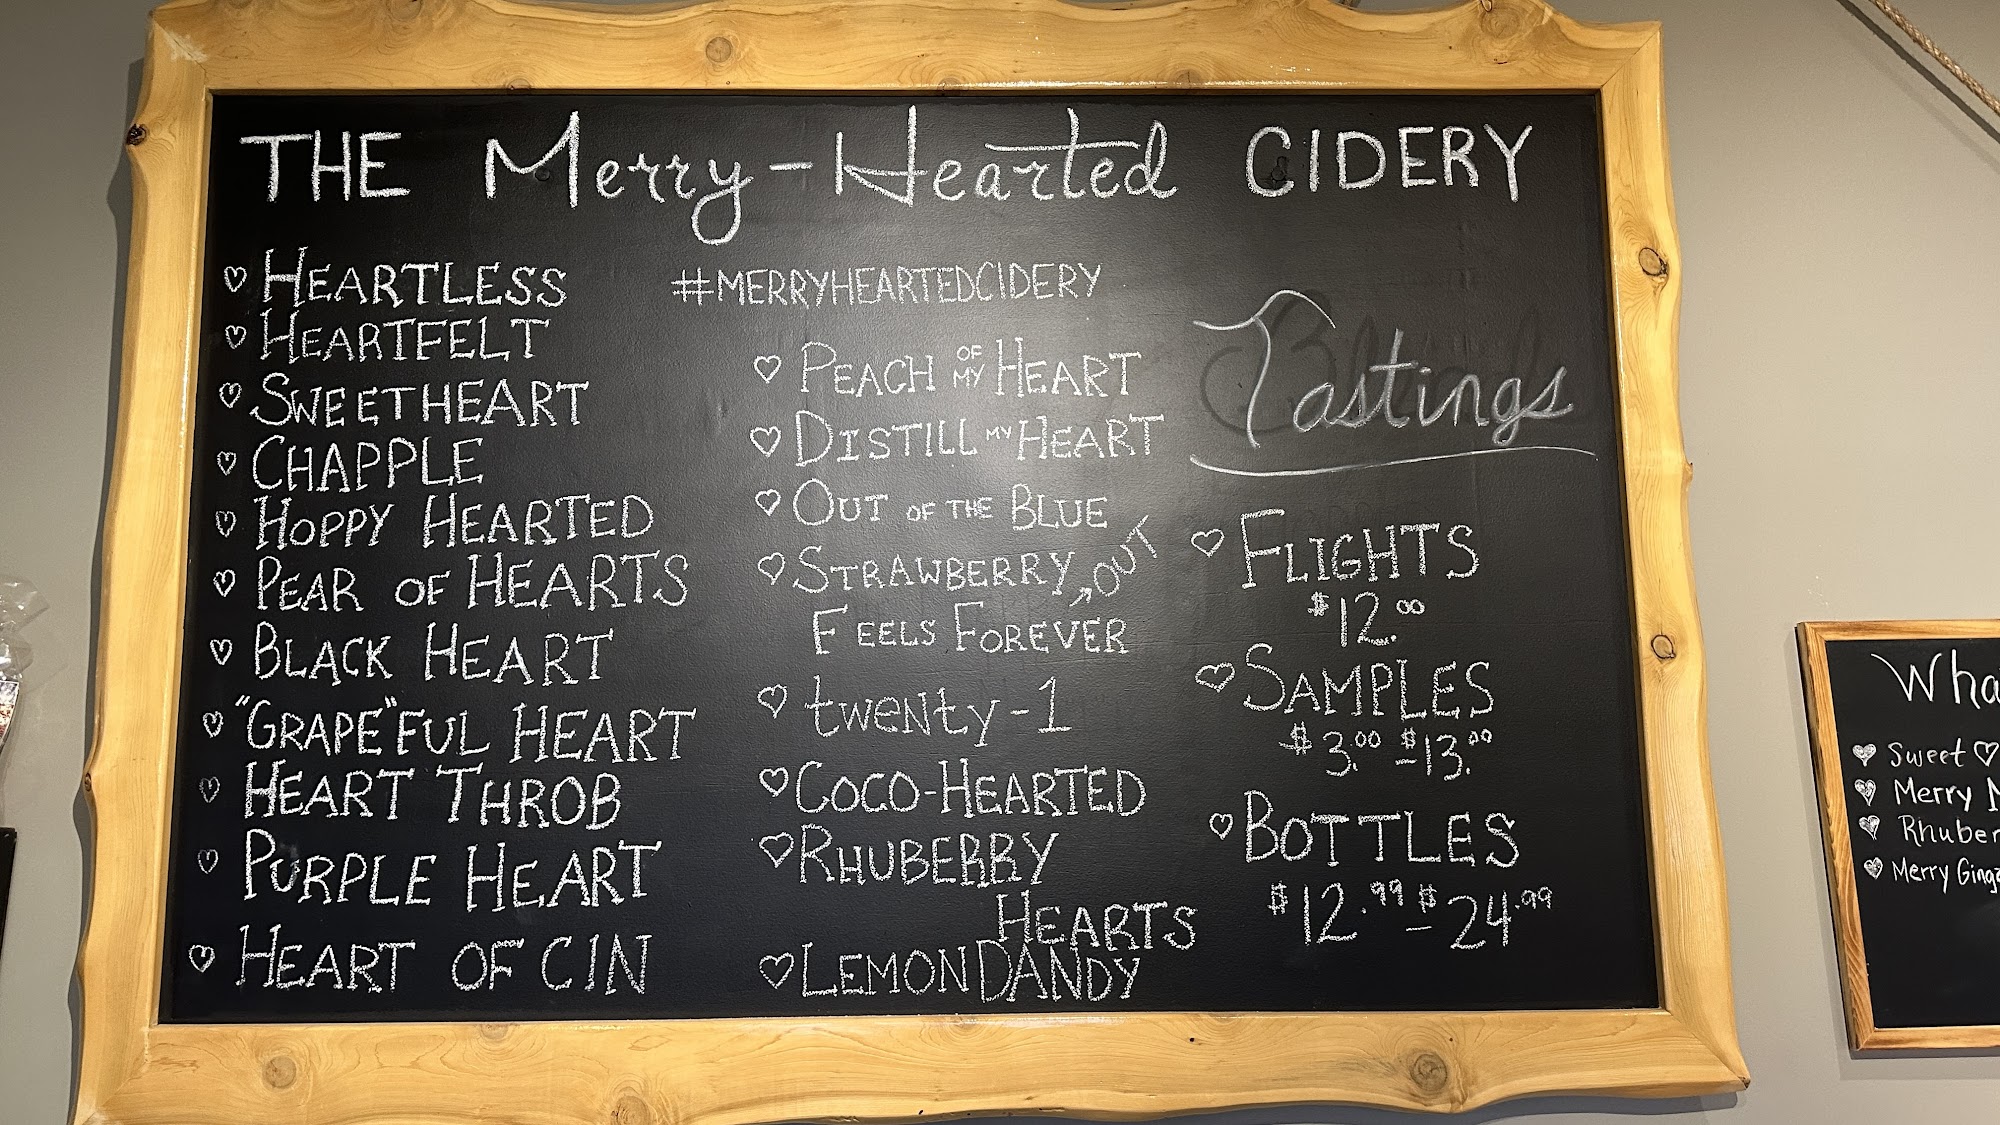 THE Merry-Hearted CIDERY
♡ HEARTLESS
♡ HEARTFELT
♡ SWEETHEART
♡ CHAPPLE
♡ HOPPY HEARTED
♡ PEAR OF HEARTS
♡ BLACK HEART
♡ "GRAPE"FUL HEART
♡ HEART THROB
♡ PURPLE HEART
♡ HEART OF CIN
#MERRYHEARTEDCIDERY
♡ PEACH OF MY HEART
♡ DISTILL MY HEART
♡ OUT OF THE BLUE
♡ STRAWBERRY → OUT
FEELS FOREVER
♡ twenty-1
♡ COCO-HEARTED
♡ RHUBERRY
HEARTS
♡ LEMONDANDY
Tastings
♡ FLIGHTS
$12.00
♡ SAMPLES
$3.00 - $13.00
♡ BOTTLES
$12.99 - $24.99
Sweet ♡
Merry